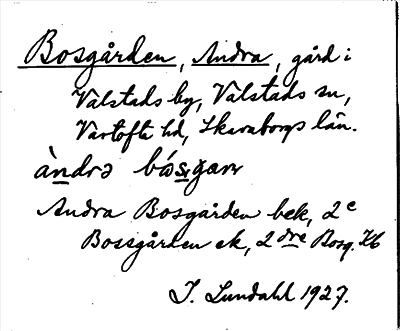 Bosgården, Andra, gård i
Valstads by, Valstads sn,
Vartofta hd, Skaraborgs län.
àndrə bósgaɳ
Andra Bosgården bek, 2e
Bossgården ek, 2dre Bosg. Kb
I. Lundahl 1927.